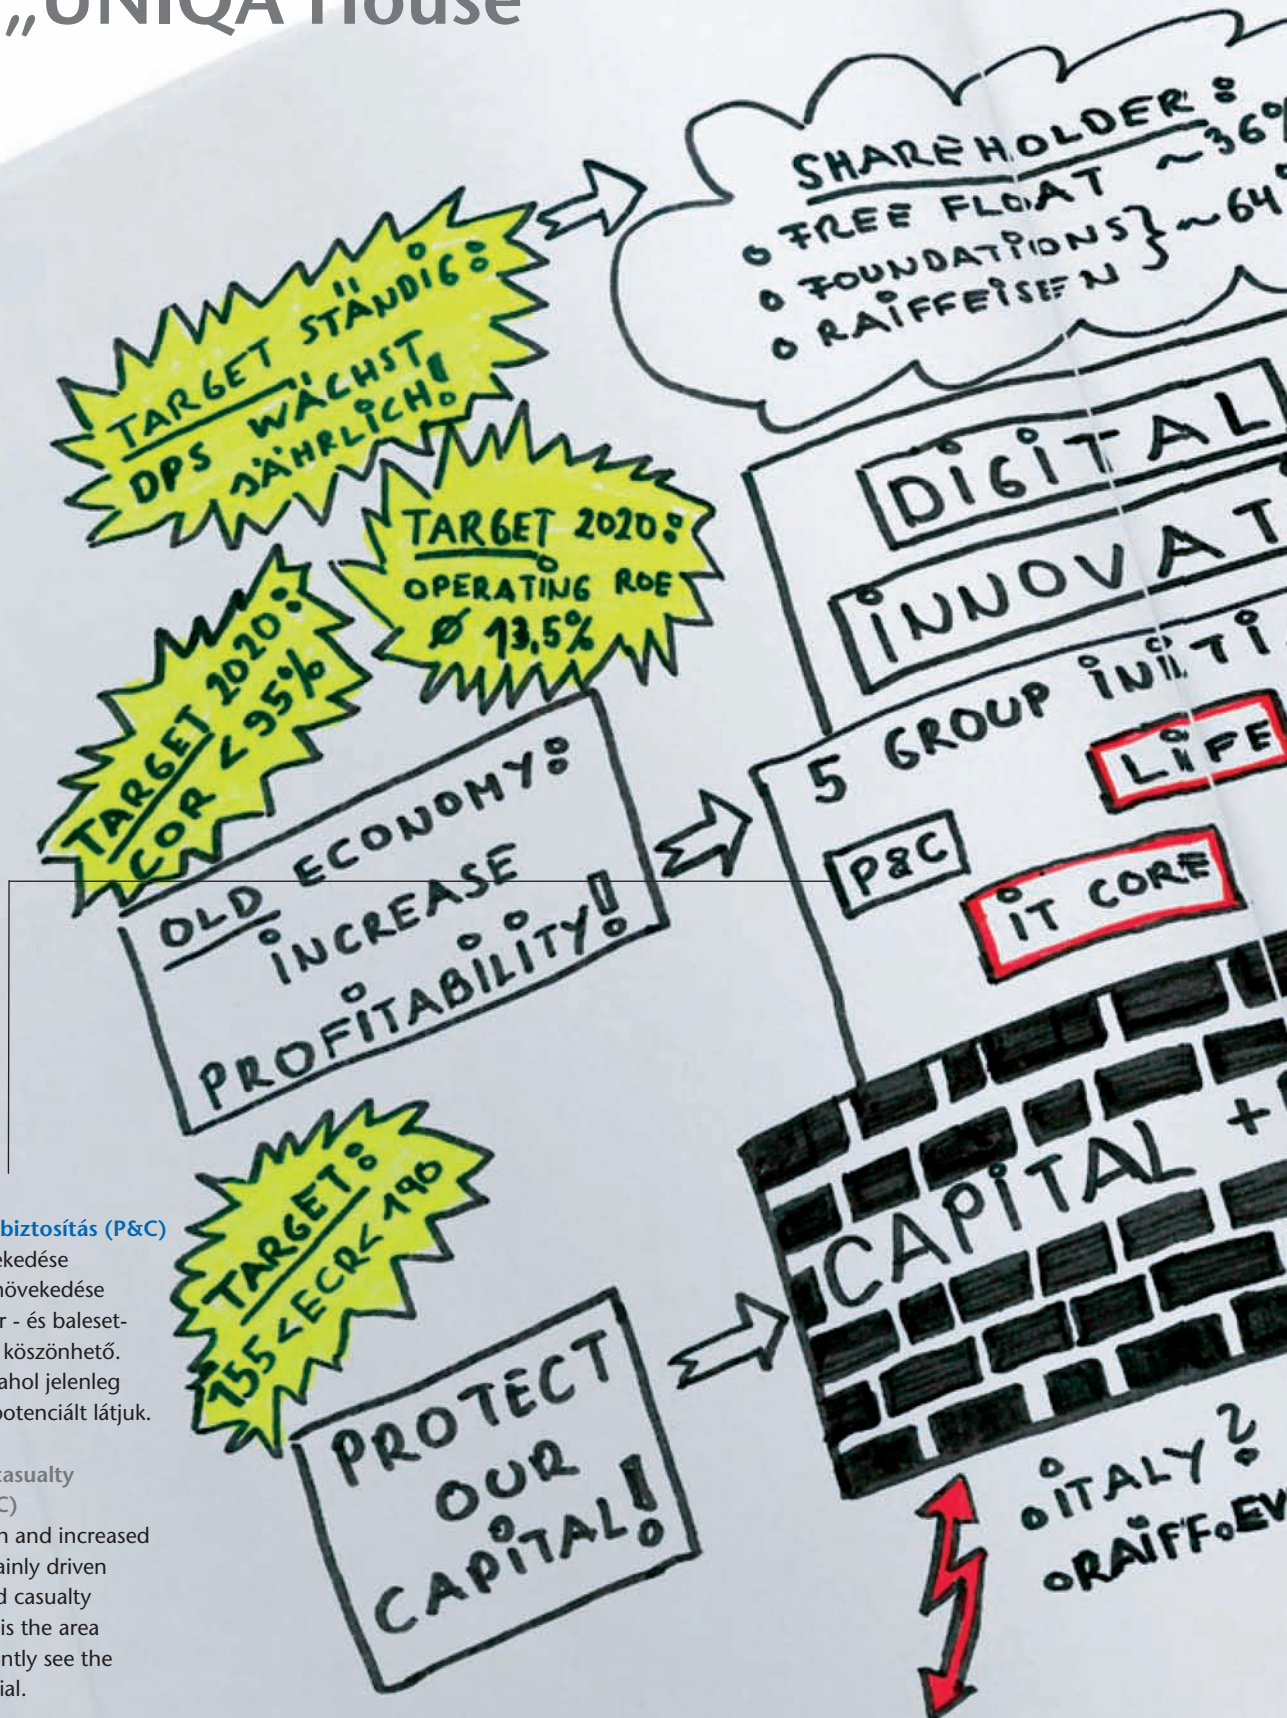 „UNIQA House
SHAREHOLDER:
• FREE FLOAT ~36%
• FOUNDATIONS } ~64
• RAIFFEISEN
TARGET STÄNDIG:
DPS WÄCHST
JÄHRLICH!
TARGET 2020:
OPERATING ROE
Ø 13,5%
TARGET 2020:
COR < 95%
DIGITAL
INNOVAT
5 GROUP INITI
LIFE
P&C
IT CORE
OLD ECONOMY:
INCREASE
PROFITABILITY!
CAPITAL +
TARGET:
155 < ECR < 190
PROTECT
OUR
CAPITAL!
• ITALY?
• RAIFF. EV
biztosítás (P&C)
ekedése
növekedése
r - és baleset-
köszönhető.
ahol jelenleg
potenciált látjuk.
casualty
C)
n and increased
ainly driven
d casualty
is the area
ntly see the
ial.